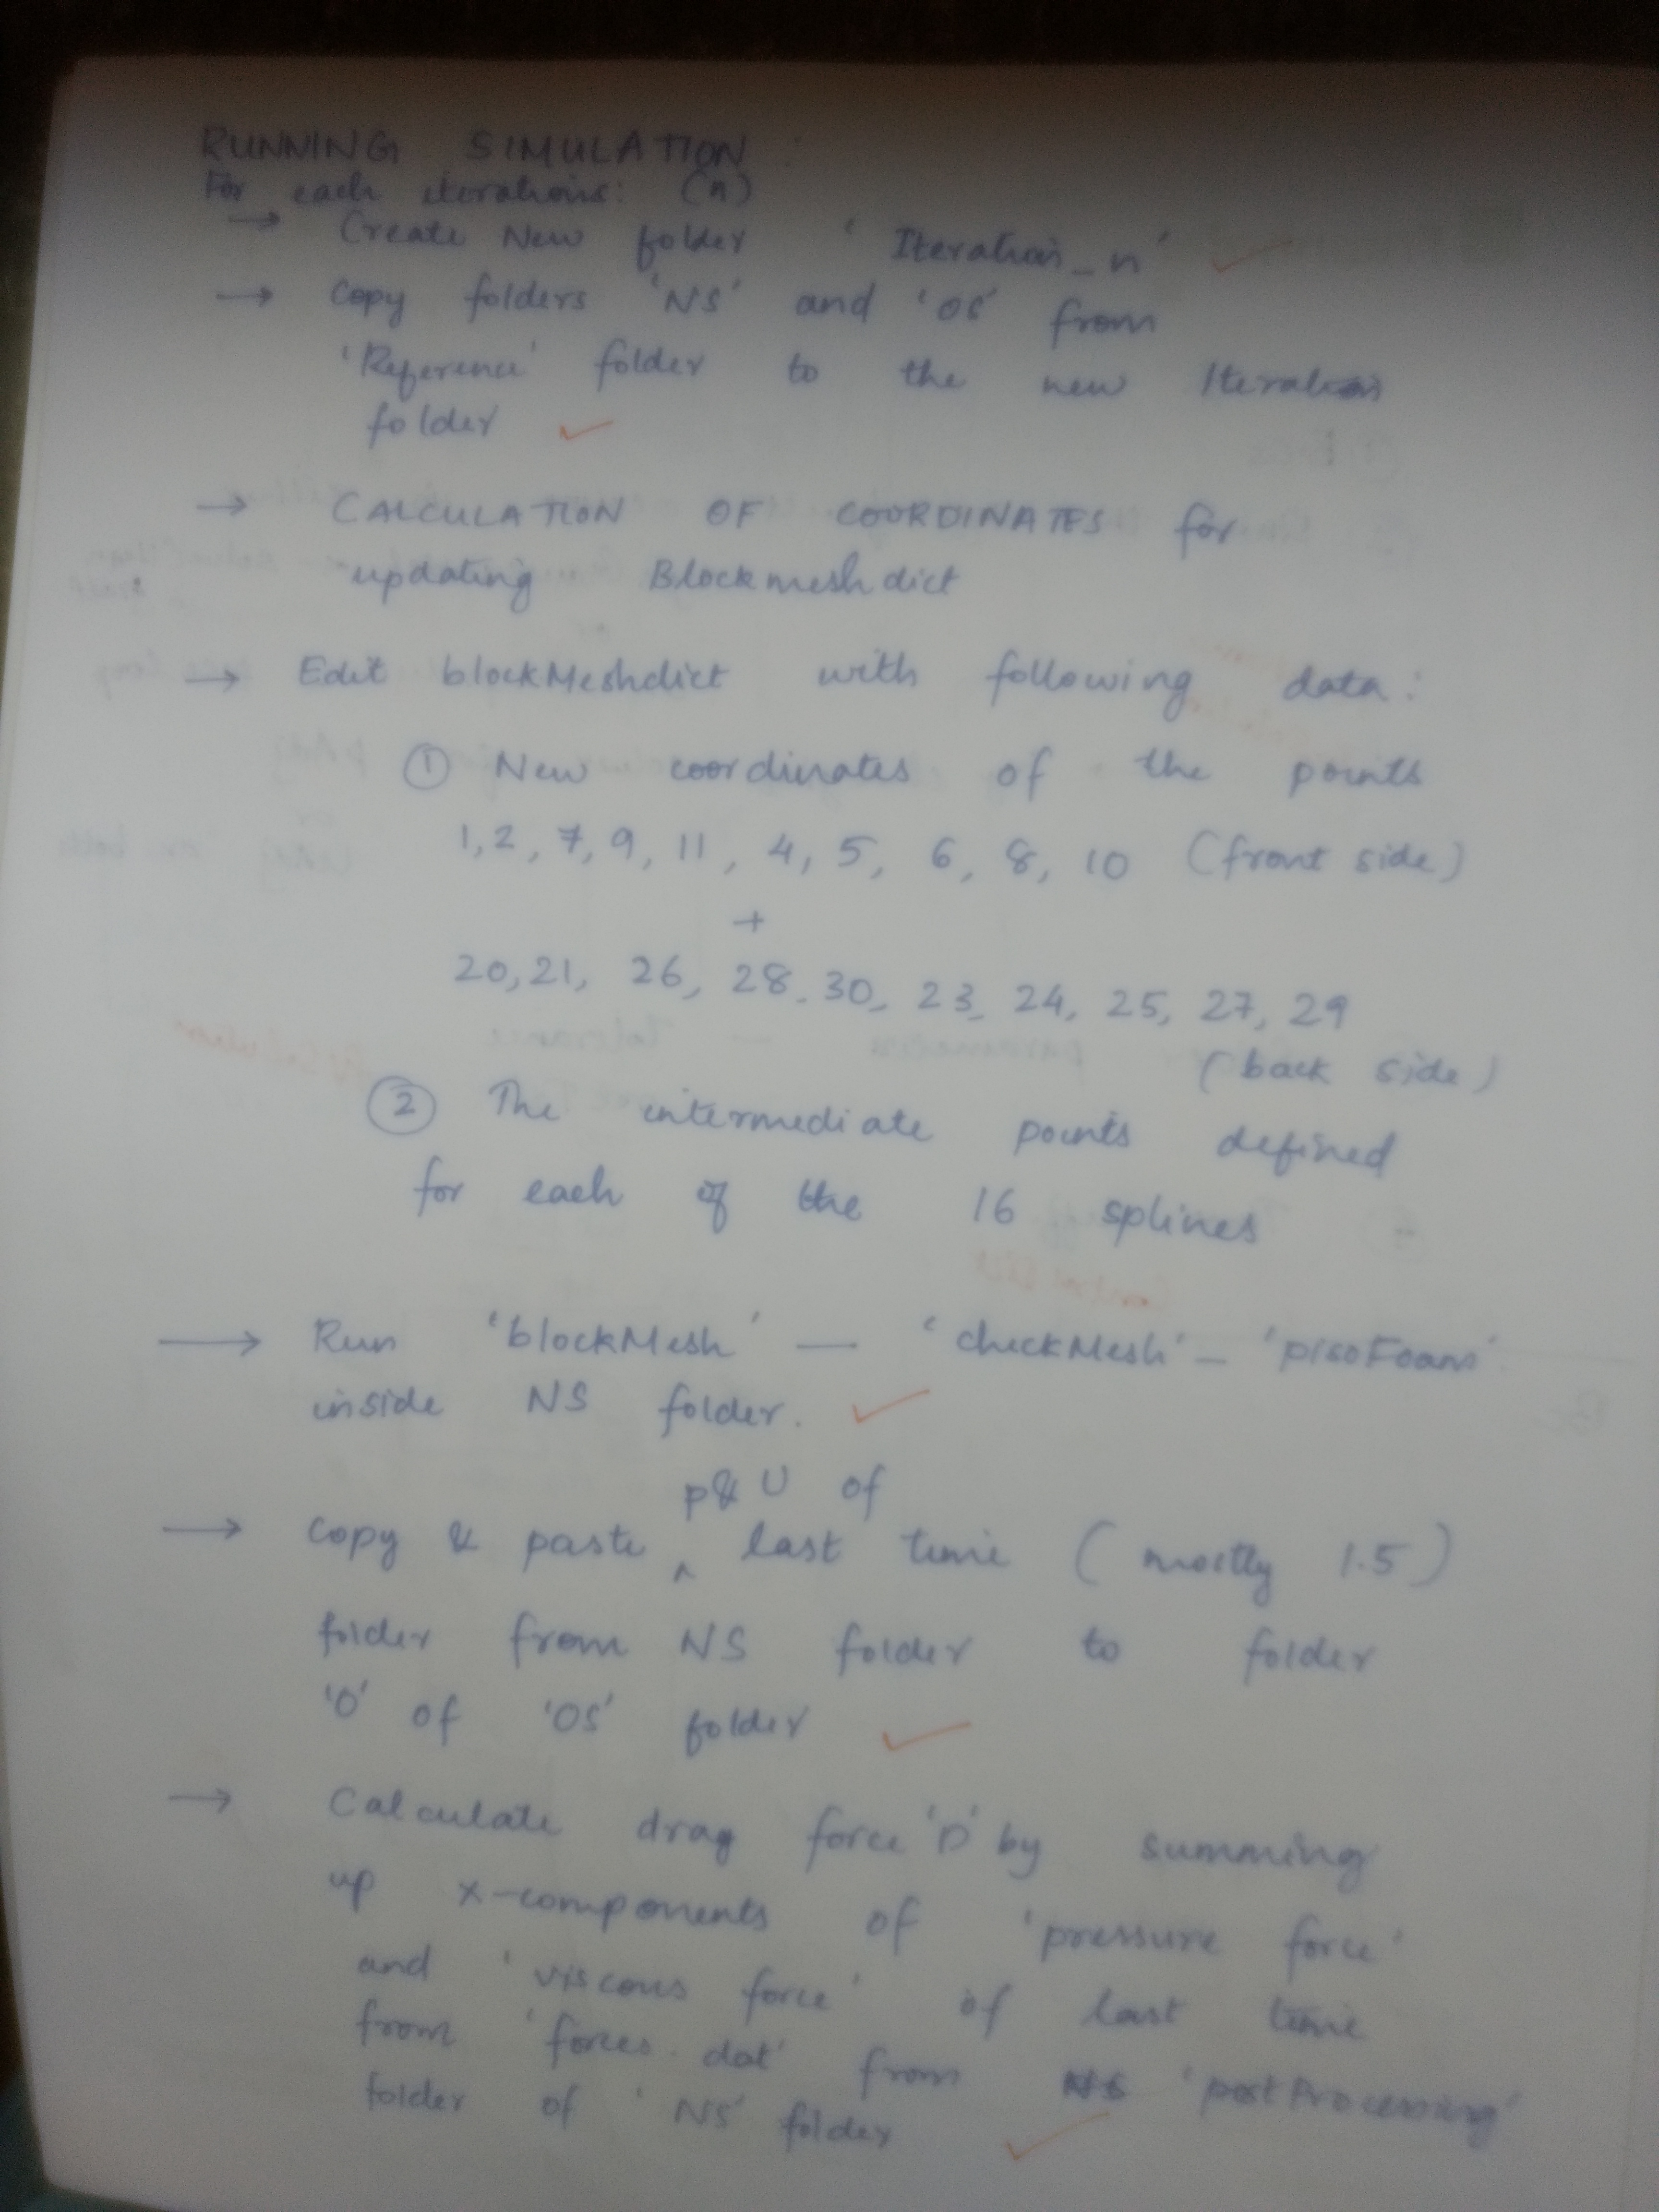 RUNNING SIMULATION :
For each iterations: (n)
→ Create New folder 'Iteration_n' ✓
→ Copy folders 'NS' and 'OS' from
'Reference' folder to the new Iteration
folder ✓
→ CALCULATION OF COORDINATES for
updating Blockmeshdict
→ Edit blockMeshdict with following data:
① New coordinates of the points
1, 2, 7, 9, 11, 4, 5, 6, 8, 10 (front side)
+
20, 21, 26, 28, 30, 23, 24, 25, 27, 29
(back side)
② The intermediate points defined
for each of the 16 splines
→ Run 'blockMesh' — 'checkMesh' — 'pisoFoam'
inside NS folder. ✓
p & U of
→ Copy & paste ^ last time (mostly 1.5)
folder from NS folder to folder
'0' of 'OS' folder ✓
→ Calculate drag force 'D' by summing
up x-components of 'pressure force'
and 'viscous force' of last time
from 'forces.dat' from NS 'postProcessing'
folder of 'NS' folder ✓